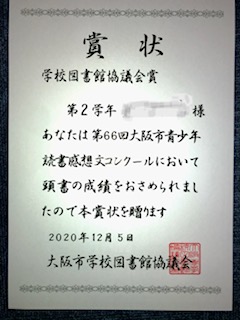 賞状
学校図書館協議会賞
第2学年 様
あなたは第66回大阪市青少年
読書感想文コンクールにおいて
頭書の成績をおさめられまし
たので本賞状を贈ります
2020年12月5日
大阪市学校図書館協議会